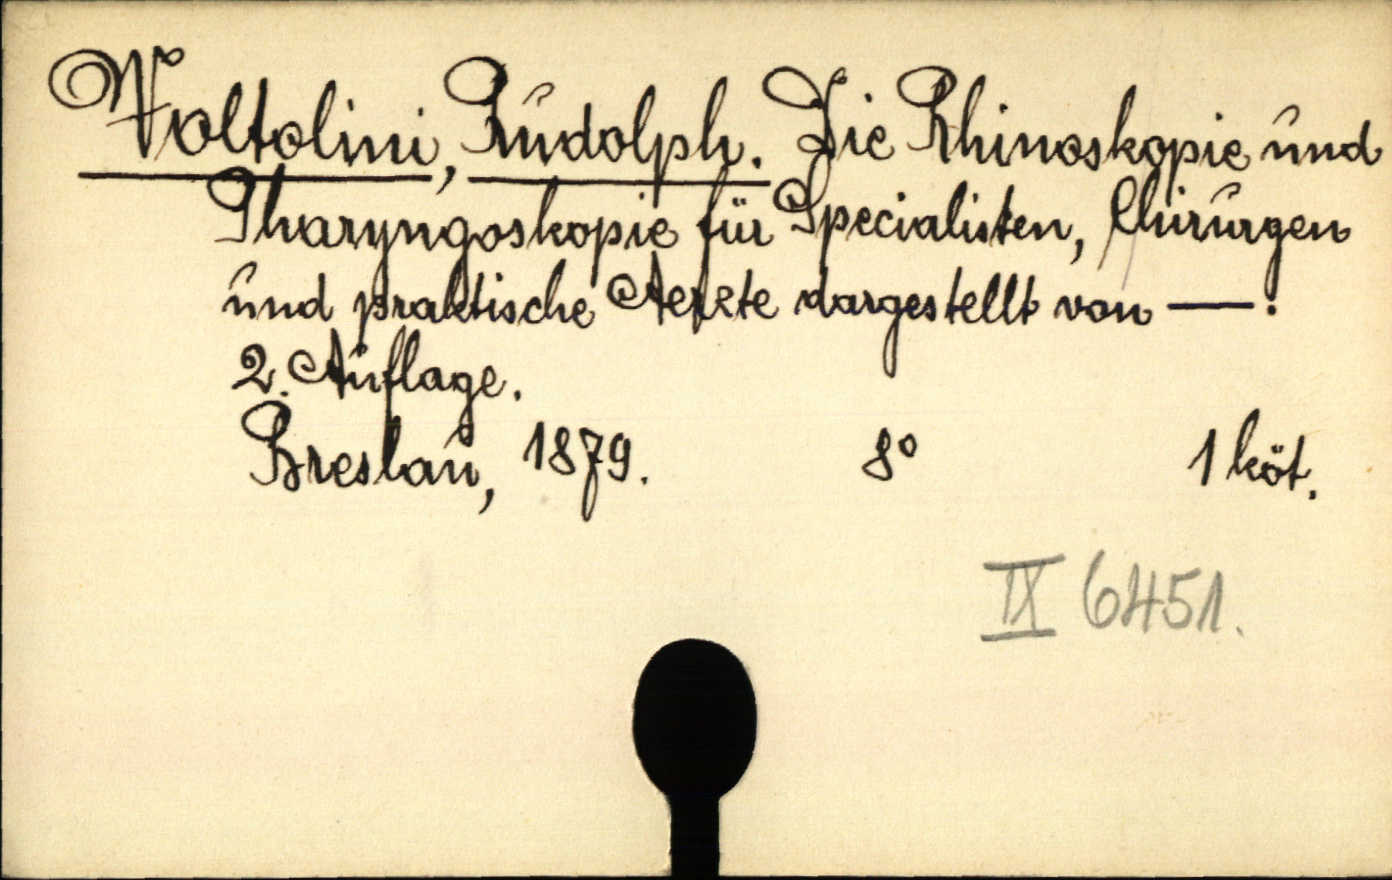 Voltolini, Rudolph. Die Rhinoskopie und
Pharyngoskopie für Specialisten, Chirurgen
und praktische Aerzte dargestellt von —.
2. Auflage.
Breslau, 1879. 8° 1 köt.
IX 6451.